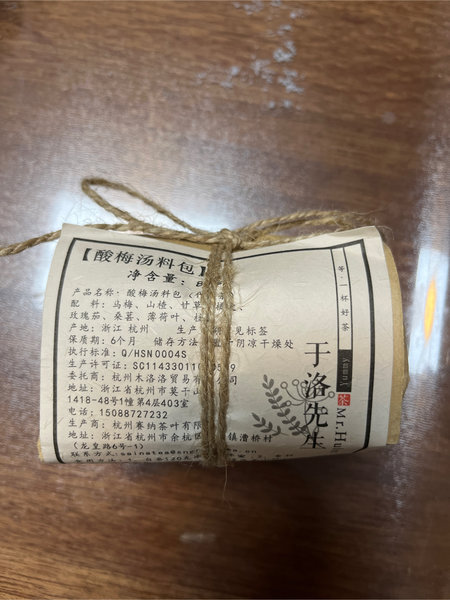 【酸梅汤料包】
净含量：
产品名称：酸梅汤料包（代
配 料：乌梅、山楂、甘草
玫瑰茄、桑葚、薄荷叶、
产地：浙江 杭州 生产 见标签
保质期：6个月 储存方法 阴凉干燥处
执行标准：Q/HSN0004S
生产许可证：SC11433011
委托商：杭州木洛洛贸易有 公司
地址：浙江省杭州市莫干山
1418-48号1幢第4层403室
电话：15088727232
生产商：杭州赛纳茶叶有限
地址：浙江省杭州市余杭区 镇漕桥村
（龙皇路6号-1）
联系方式：
等一杯好茶
于洛先生
yummy
茶 Mr.Hu